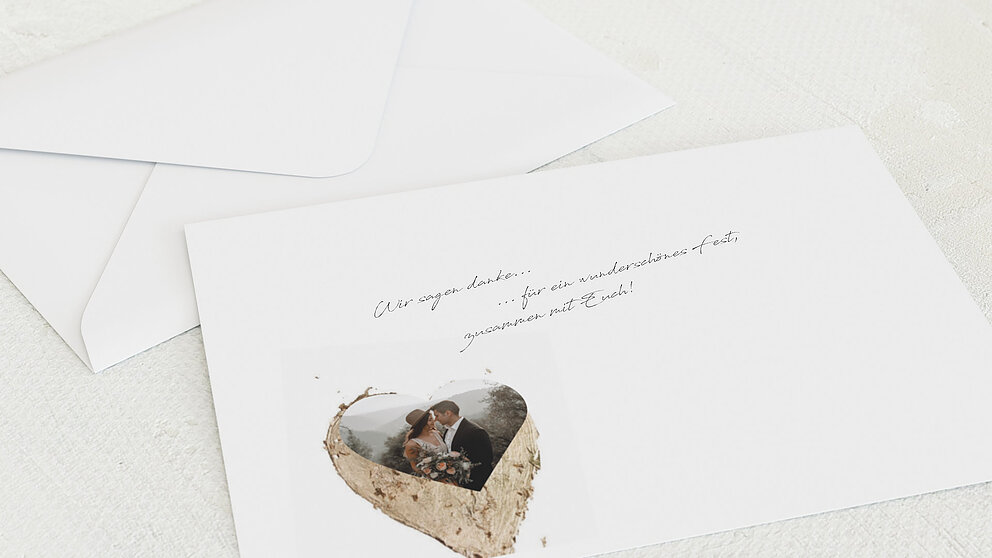 Wir sagen danke...
... für ein wunderschönes Fest,
zusammen mit Euch!